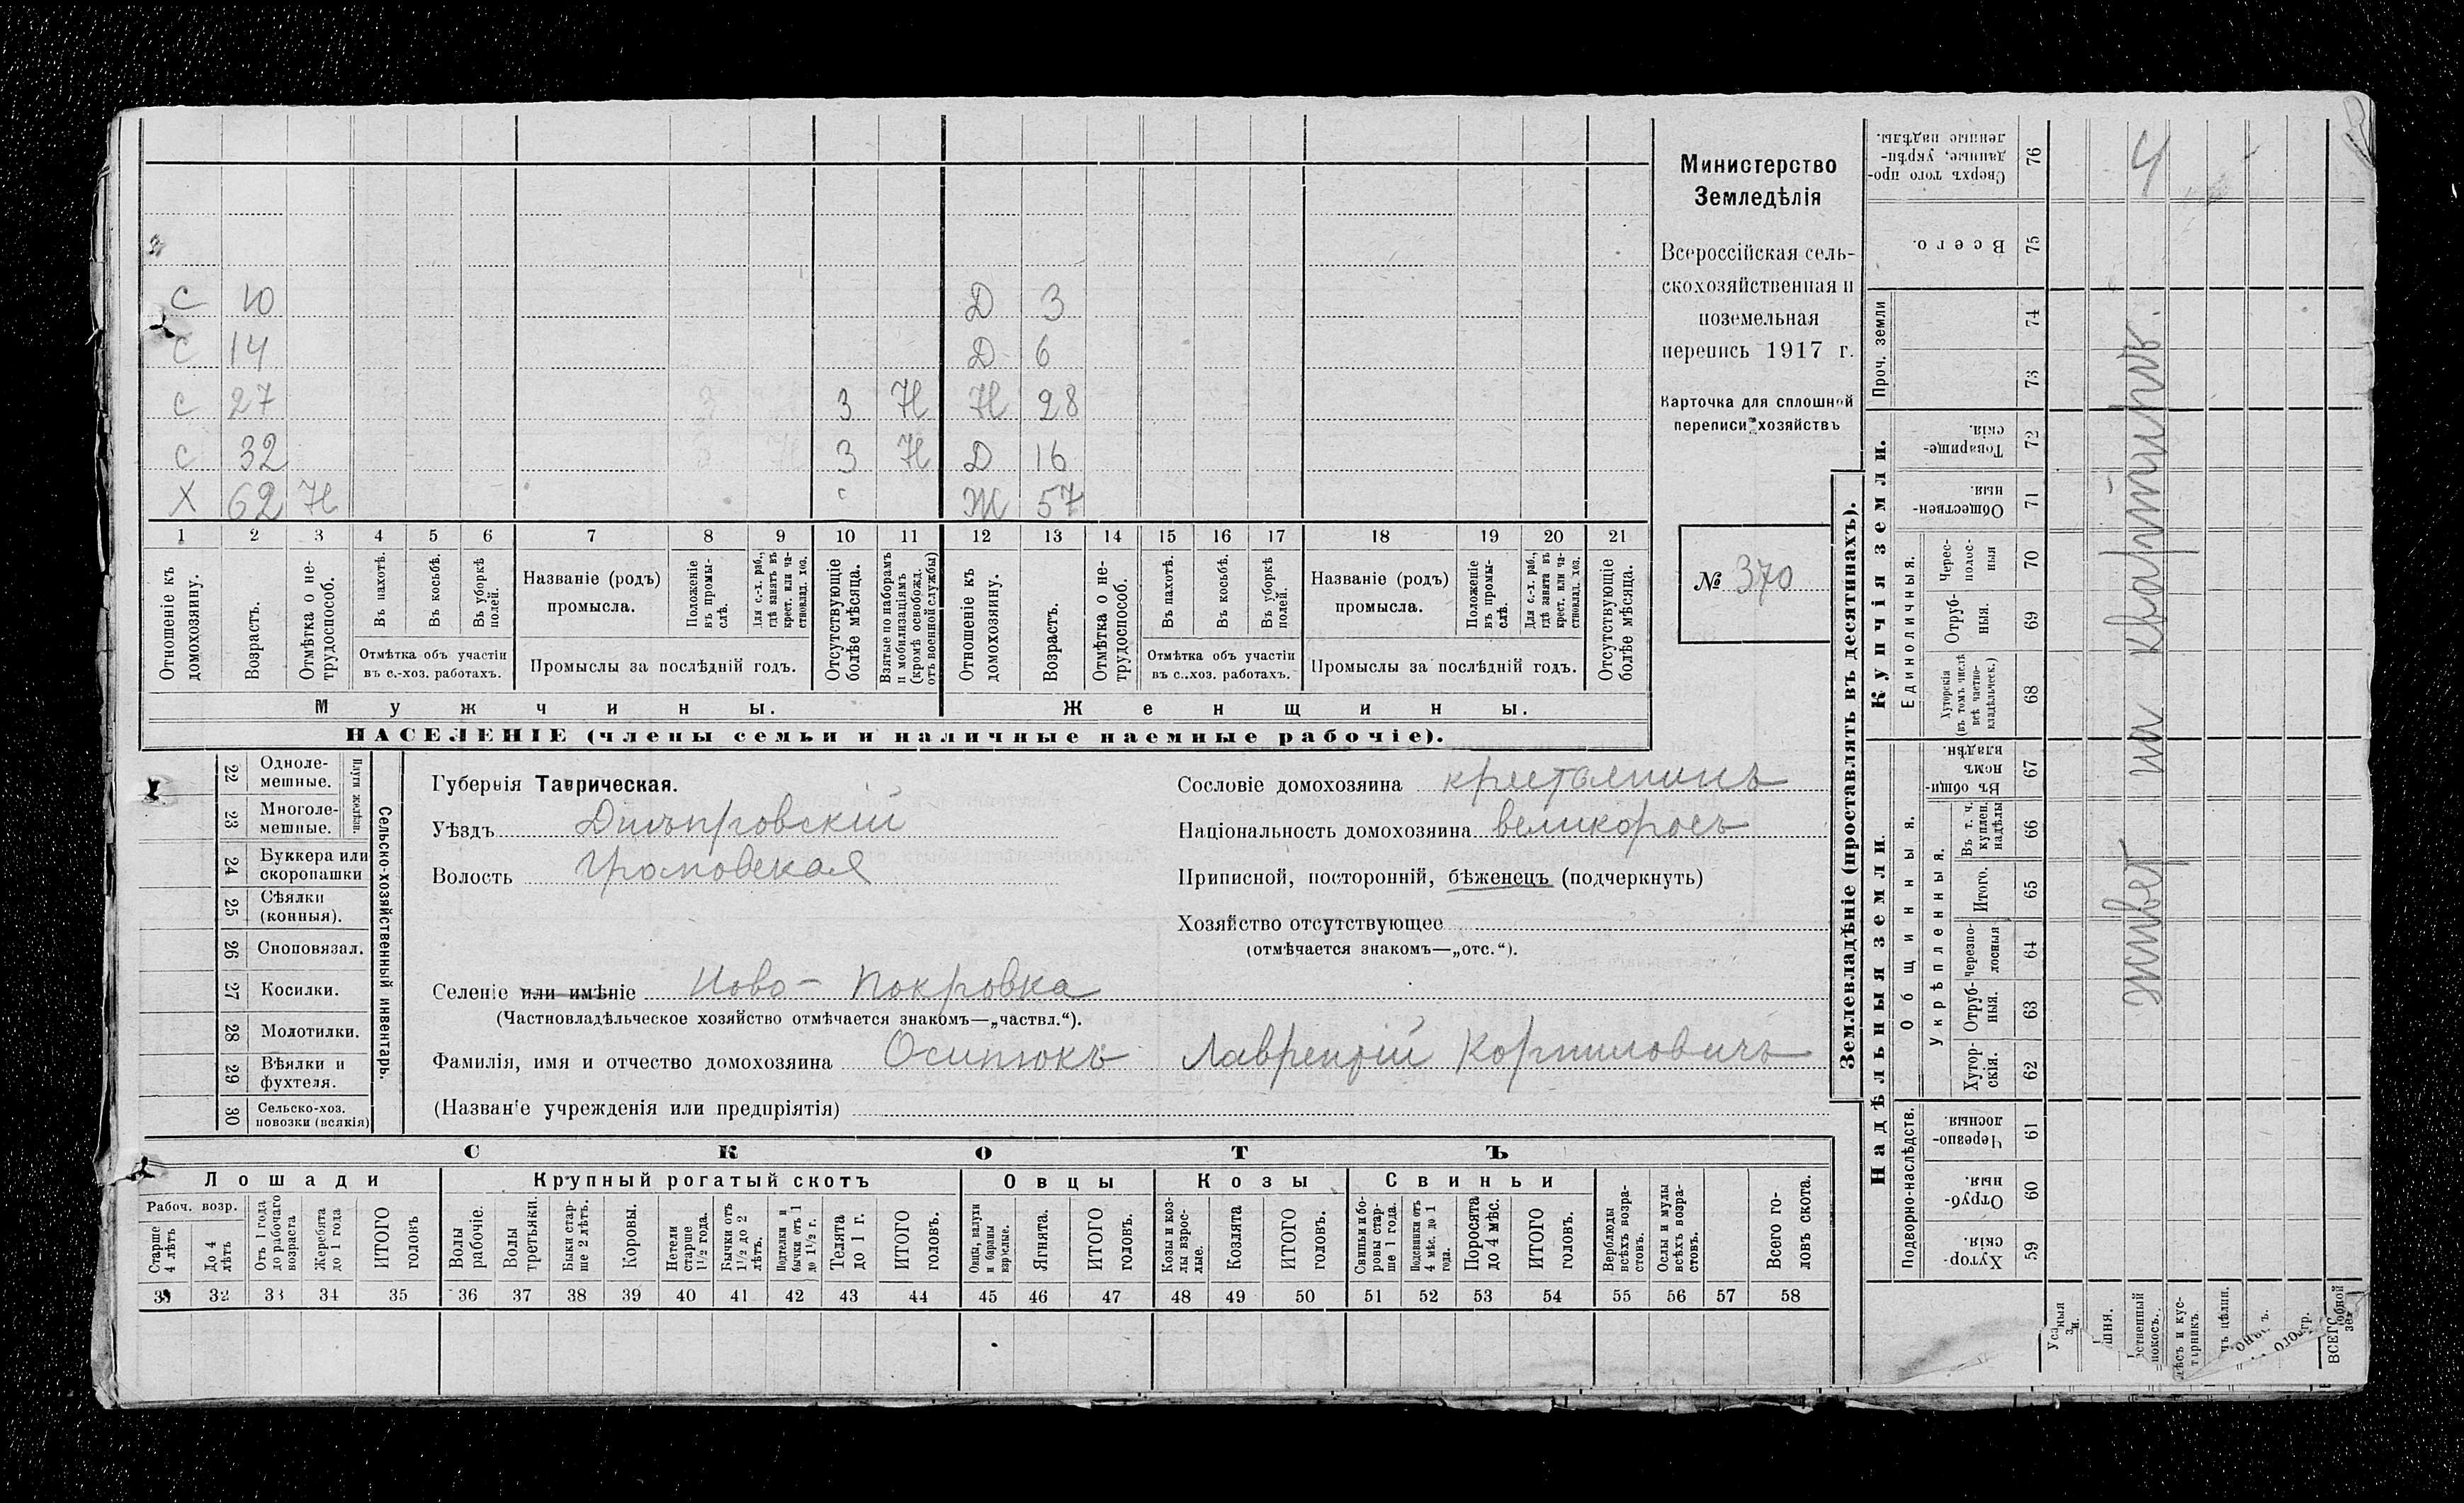 С 10 Д 3
С 14 Д 6
С 27 3 Н Н 28
С 32 3 Н Д 16
Х 62 Н Ж 57
1 2 3 4 5 6 7 8 9 10 11 12 13 14 15 16 17 18 19 20 21
Отношеніе къ домохозяину.
Возрастъ.
Отмѣтка о не-трудоспособ.
Въ пахотѣ.
Въ косьбѣ.
Въ уборкѣ полей.
Отмѣтка объ участіи
въ с.-хоз. работахъ.
Названіе (родъ)
промысла.
Положеніе въ промы-слѣ.
Для с.-х. раб., гдѣ занятъ въ крест. или ча-стновлад. хоз.
Промыслы за послѣдній годъ.
Отсутствующіе болѣе мѣсяца.
Взятые по наборамъ и мобилизаціямъ (кромѣ освобожд. отъ военной службы)
Отношеніе къ домохозяину.
Возрастъ.
Отмѣтка о не-трудоспособ.
Въ пахотѣ.
Въ косьбѣ.
Въ уборкѣ полей.
Отмѣтка объ участіи
въ с.-хоз. работахъ.
Названіе (родъ)
промысла.
Положеніе въ промы-слѣ.
Для с.-х. раб., гдѣ занята въ крест. или ча-стновлад. хоз.
Промыслы за послѣдній годъ.
Отсутствующіе болѣе мѣсяца.
Мужчины. Женщины.
НАСЕЛЕНІЕ (члены семьи и наличные наемные рабочіе).
Министерство
Земледѣлія
Всероссійская сель-
скохозяйственная и
поземельная
перепись 1917 г.
Карточка для сплошной
переписи хозяйствъ
№ 370
22 Одноле-мешные.
23 Многоле-мешные.
Плуги желѣзн.
24 Буккера или скоропашки
25 Сѣялки (конныя).
26 Сноповязал.
27 Косилки.
28 Молотилки.
29 Вѣялки и фухтеля.
30 Сельско-хоз. повозки (всякія)
Сельско-хозяйственный инвентарь.
Губернія Таврическая.
Уѣздъ Днѣпровскій
Волость Громовская
Селеніе или имѣніе Ново-Покровка
(Частновладѣльческое хозяйство отмѣчается знакомъ—„частвл.“).
Фамилія, имя и отчество домохозяина Осипюкъ Лаврентій Корниловичъ
(Названіе учрежденія или предпріятія)
Сословіе домохозяина крестьянинъ
Національность домохозяина великороссъ
Приписной, посторонній, бѣженецъ (подчеркнуть)
Хозяйство отсутствующее
(отмѣчается знакомъ—„отс.“).
СКОТЪ
Лошади Крупный рогатый скотъ Овцы Козы Свиньи
Рабоч. возр.
Старше 4 лѣтъ
До 4 лѣтъ
Отъ 1 года до рабочаго возраста
Жеребята до 1 года
ИТОГО головъ
Волы рабочіе.
Волы третьяки.
Быки стар-ше 2 лѣтъ.
Коровы.
Нетели старше 1½ года.
Бычки отъ 1½ до 2 лѣтъ.
Подтелки и бычки отъ 1 до 1½ г.
Телята до 1 г.
ИТОГО головъ.
Овцы, валухи и бараны взрослые.
Ягнята.
ИТОГО головъ.
Козы и коз-лы взрос-лые.
Козлята
ИТОГО головъ.
Свиньи и бо-ровы стар-ше 1 года.
Подсвинки отъ 4 мѣс. до 1 года.
Поросята до 4 мѣс.
ИТОГО головъ.
Верблюды всѣхъ возра-стовъ.
Ослы и мулы всѣхъ возра-стовъ.
Всего го-ловъ скота.
31 32 33 34 35 36 37 38 39 40 41 42 43 44 45 46 47 48 49 50 51 52 53 54 55 56 57 58
Землевладѣніе (проставлять въ десятинахъ).
Надѣльныя земли.
Купчія земли.
Проч. земли
Подворно-наслѣдств.
Общинныя.
Укрѣпленныя.
Единоличныя.
Сверхъ того про-данные, укрѣп-ленные надѣлы. 76
Всего. 75
74
73
Товарище-скія. 72
Обществен-ныя. 71
Черес-полос-ныя 70
Отруб-ныя. 69
Хуторскія (въ томъ числѣ всѣ частно-владѣльческ.) 68
Въ общин-номъ владѣн. 67
Въ т. ч. куплен. надѣлы 66
Итого. 65
Черезпо-лосныя 64
Отруб-ныя. 63
Хутор-скія. 62
Черезпо-лосныя. 61
Отруб-ныя. 60
Хутор-скія. 59
лѣсъ и кус-тарникъ.
ВСЕГО
живет на квартирѣ.
4